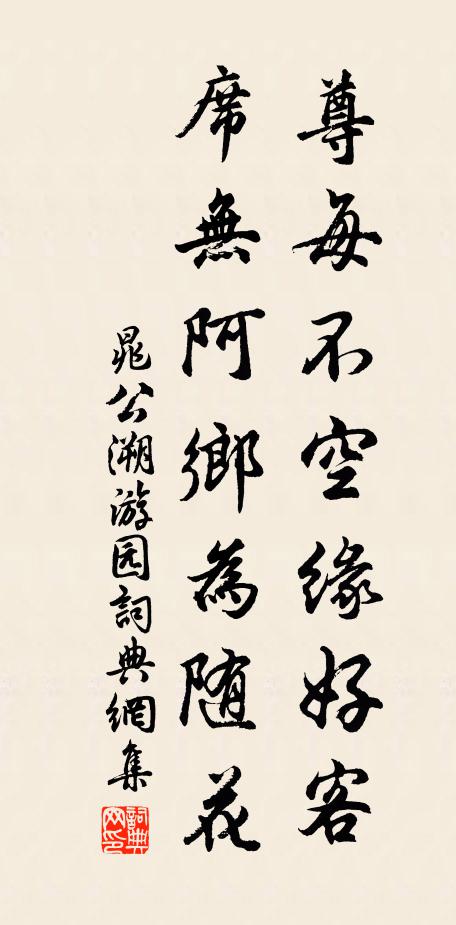 尊每不空缘好客
席無阿鄉為随花
晁公溯游园詞典網集
詞典网印